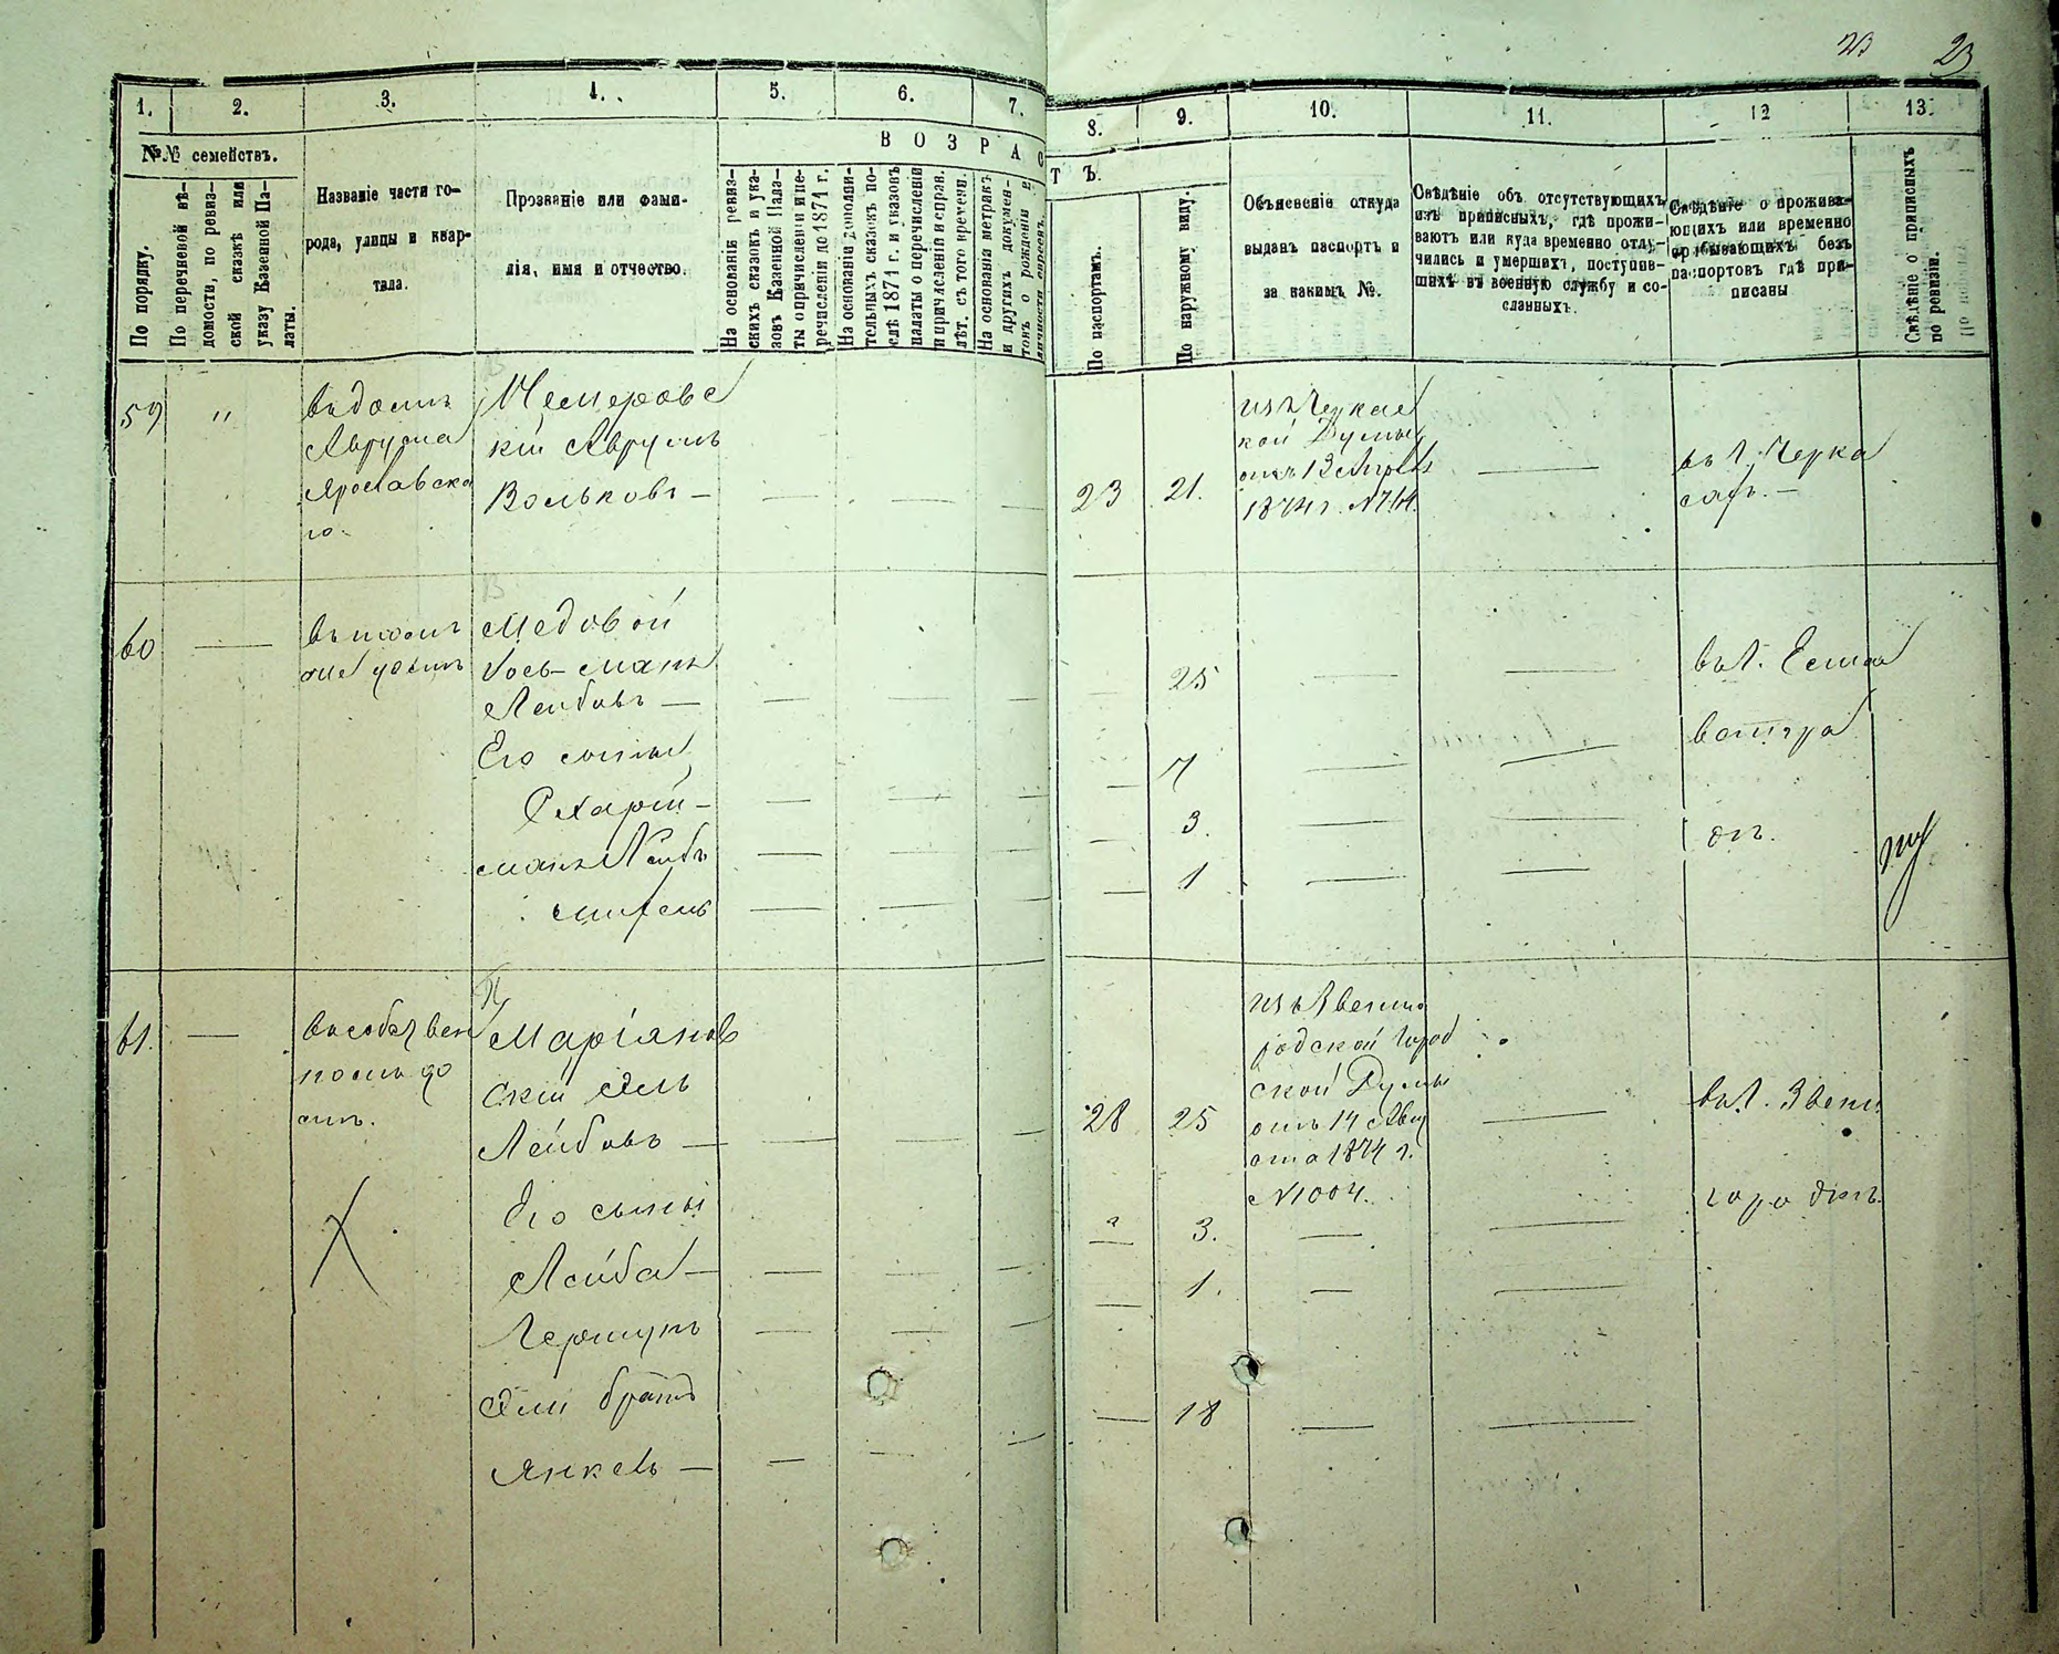 23 23
1. 2. 3. 4. 5. 6. 7. 8. 9. 10. 11. 12 13.
№№ семействъ.
ВОЗРАСТЪ.
По порядку.
По перечневой вѣ-
домости, по ревиз-
ской сказкѣ или
указу Казенной Па-
латы.
Названіе части го-
рода, улицы и квар-
тала.
Прозваніе или фами-
лія, имя и отчество.
На основаніи ревиз-
скихъ сказокъ и ука-
зовъ Казенной Пала-
ты о причисленіи и пе-
речисленіи до 1871 г.
На основаніи дополни-
тельныхъ сказокъ по-
слѣ 1871 г. и указовъ
палаты о перечисленіи
и причисленіи и справ.
лѣт. съ того времени.
На основаніи метрикъ
и другихъ докумен-
товъ о рожденіи и
личности евреевъ.
По паспортамъ.
По наружному виду.
Объясненіе откуда
выданъ паспортъ и
за какимъ №.
Свѣдѣніе объ отсутствующихъ
изъ приписныхъ, гдѣ прожи-
ваютъ или куда временно отлу-
чились и умершихъ, поступив-
шихъ въ военную службу и со-
сланныхъ.
Свѣдѣніе о прожива-
ющихъ или временно
пребывающихъ безъ
паспортовъ гдѣ при-
писаны
Свѣдѣніе о приписныхъ
по ревизіи.
59 " въ домѣ
Аврума
Ярославска
го.
Чемеровс
кій Аврумъ
Вольковъ —
23 21.
изъ Черкас
кой Думы
1874 г. № 764.
въ г. Черка
сахъ. —
60 — въ томъ
же домѣ
Медовой
Іось-манъ
Лейбовъ —
25
въ г. Елиса
ветгра
дѣ.
Его сыны
7
3.
1
61. — въ собствен
номъ до
мѣ.
Маріянов
скій Эль
Лейбовъ —
28 25
изъ Звениго
родской Город
ской Думы
отъ 14 Авгу
ста 1874 г.
№ 1004.
въ г. Звени
городкѣ.
Его сыны
Лейба — 3.
Гершунъ 1.
Эли братъ
Янкель — 18